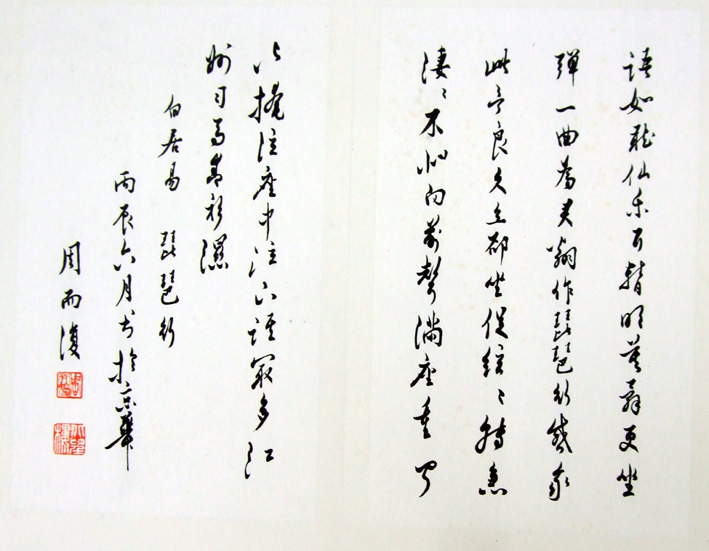 語如聽仙樂耳暫明莫辭更坐
彈一曲為君翻作琵琶行感我
此言良久立却坐促絃々轉急
淒々不似向前聲滿座重聞
皆掩泣座中泣下誰最多江
州司馬青衫濕
白居易 琵琶行
丙辰六月書於京華
周而復